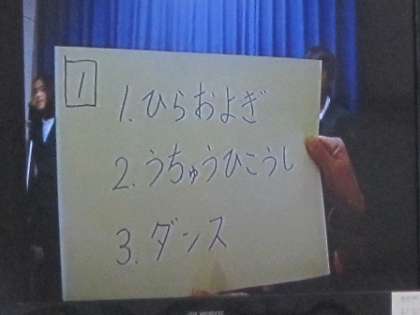 1
1. ひらおよぎ
2. うちゅうひこうし
3. ダンス